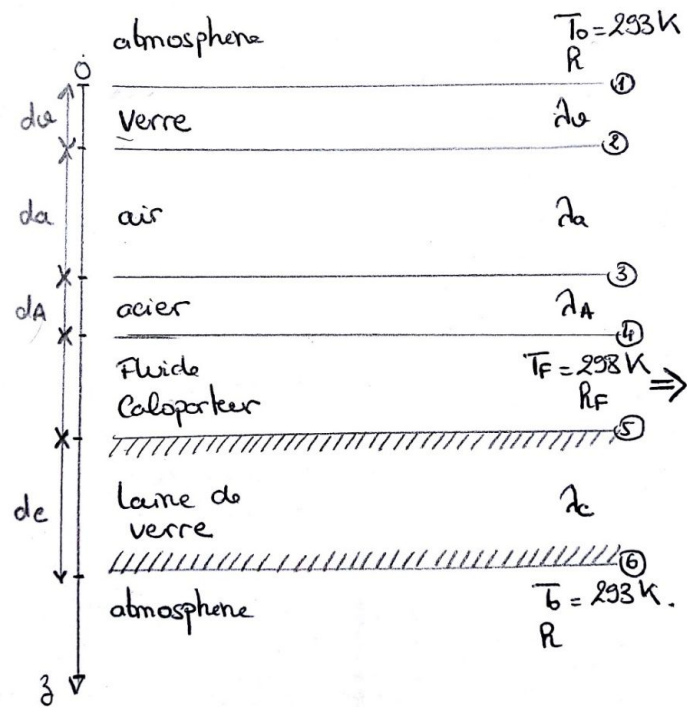 atmosphere T₀ = 293K
R
O
①
dv Verre λv
②
da air λa
③
dA acier λA
④
Fluide TF = 298K ⇒
Caloporteur RF
⑤
dc Laine de λc
verre
⑥
atmosphere T₀ = 293K.
R
z